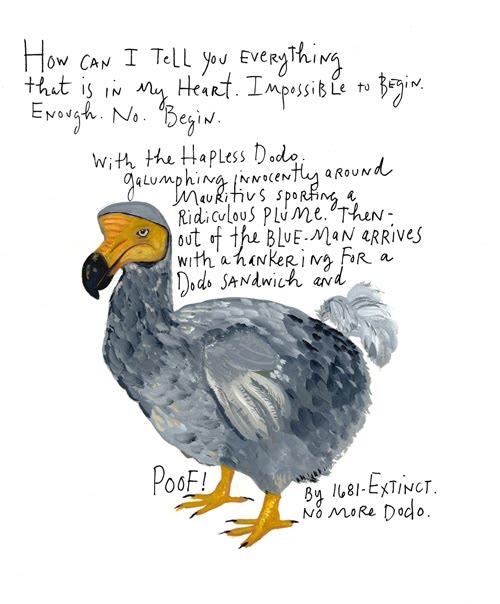 How can I Tell you Everything
that is in my Heart. Impossible to Begin.
Enough. No. Begin.
With the Hapless Dodo.
galumphing innocently around
Mauritius sporting a
Ridiculous Plume. Then-
out of the BLUE-MAN ARRIVES
with a hankering FOR a
Dodo SANDWICH and
POOF!
By 1681-EXTINCT.
NO MORE DODO.